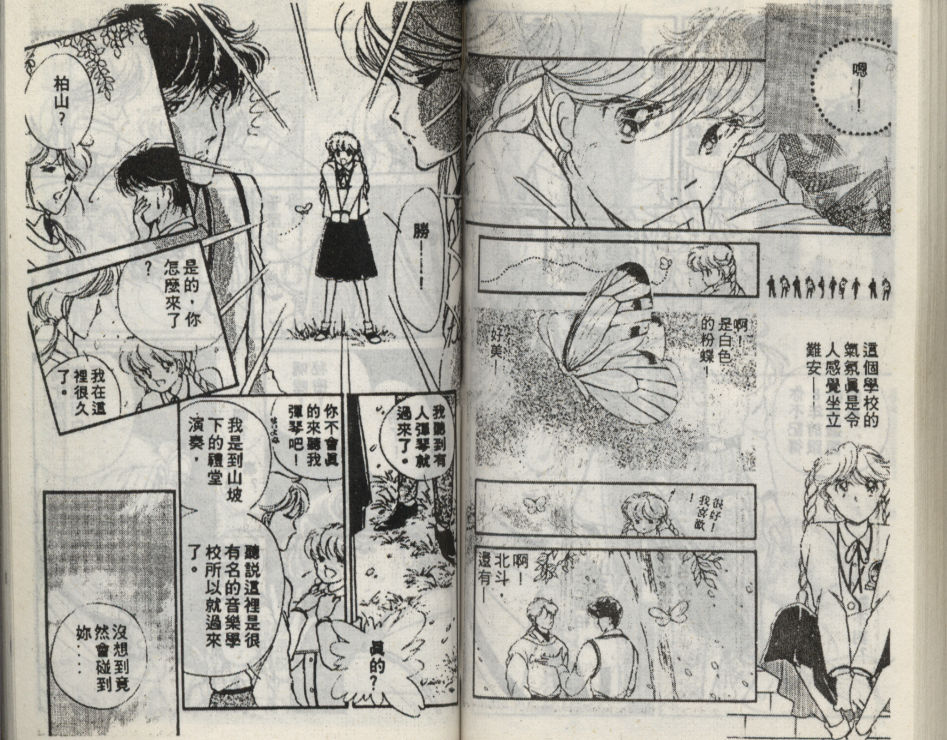 嗯—！
這個學校的
氣氛真是令
人感覺坐立
難安——
啊！
是白色
的粉蝶！
好美！
很好！
我喜歡
！
啊！
北斗
還有—
勝……！
柏山？
是的，你
怎麼來了
？
我在這
裡很久
了。
我聽到有
人彈琴就
過來了。
你不會真
的來聽我
彈琴吧！
我是到山坡
下的禮堂
演奏，
聽説這裡是很
有名的音樂學
校所以就過來
了。
真的？
沒想到竟
然會碰到
妳....